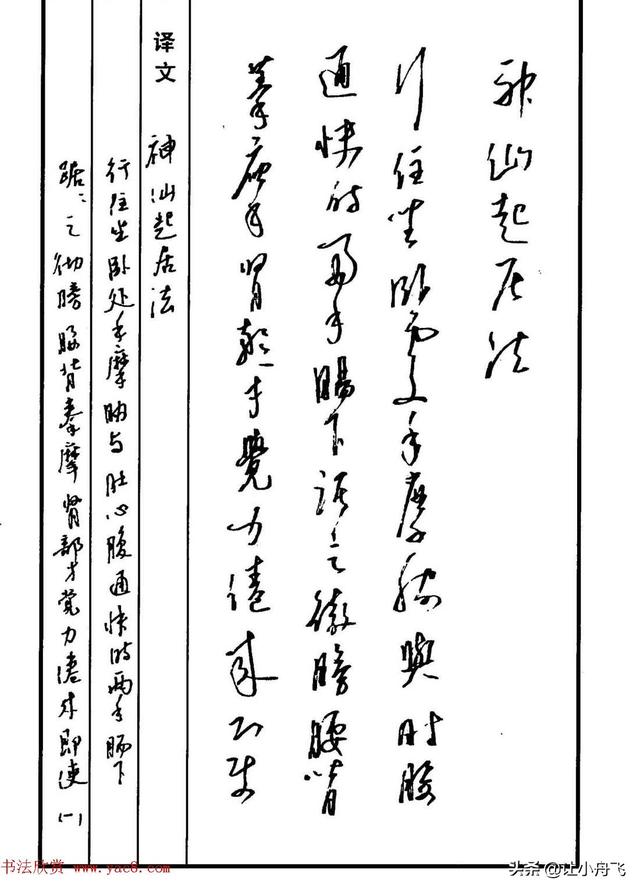 神仙起居法
行住坐卧处手摩胁与肚心腹
通快时两手肠下踞之彻膀腰背
拳摩肾部才觉力倦来即使
译文
神仙起居法
行住坐卧处手摩胁与肚心腹通快时两手肠下
踞：之彻膀腰背拳摩肾部才觉力倦来即使（一）
书法欣赏 www.yac8.com
头条@让小舟飞